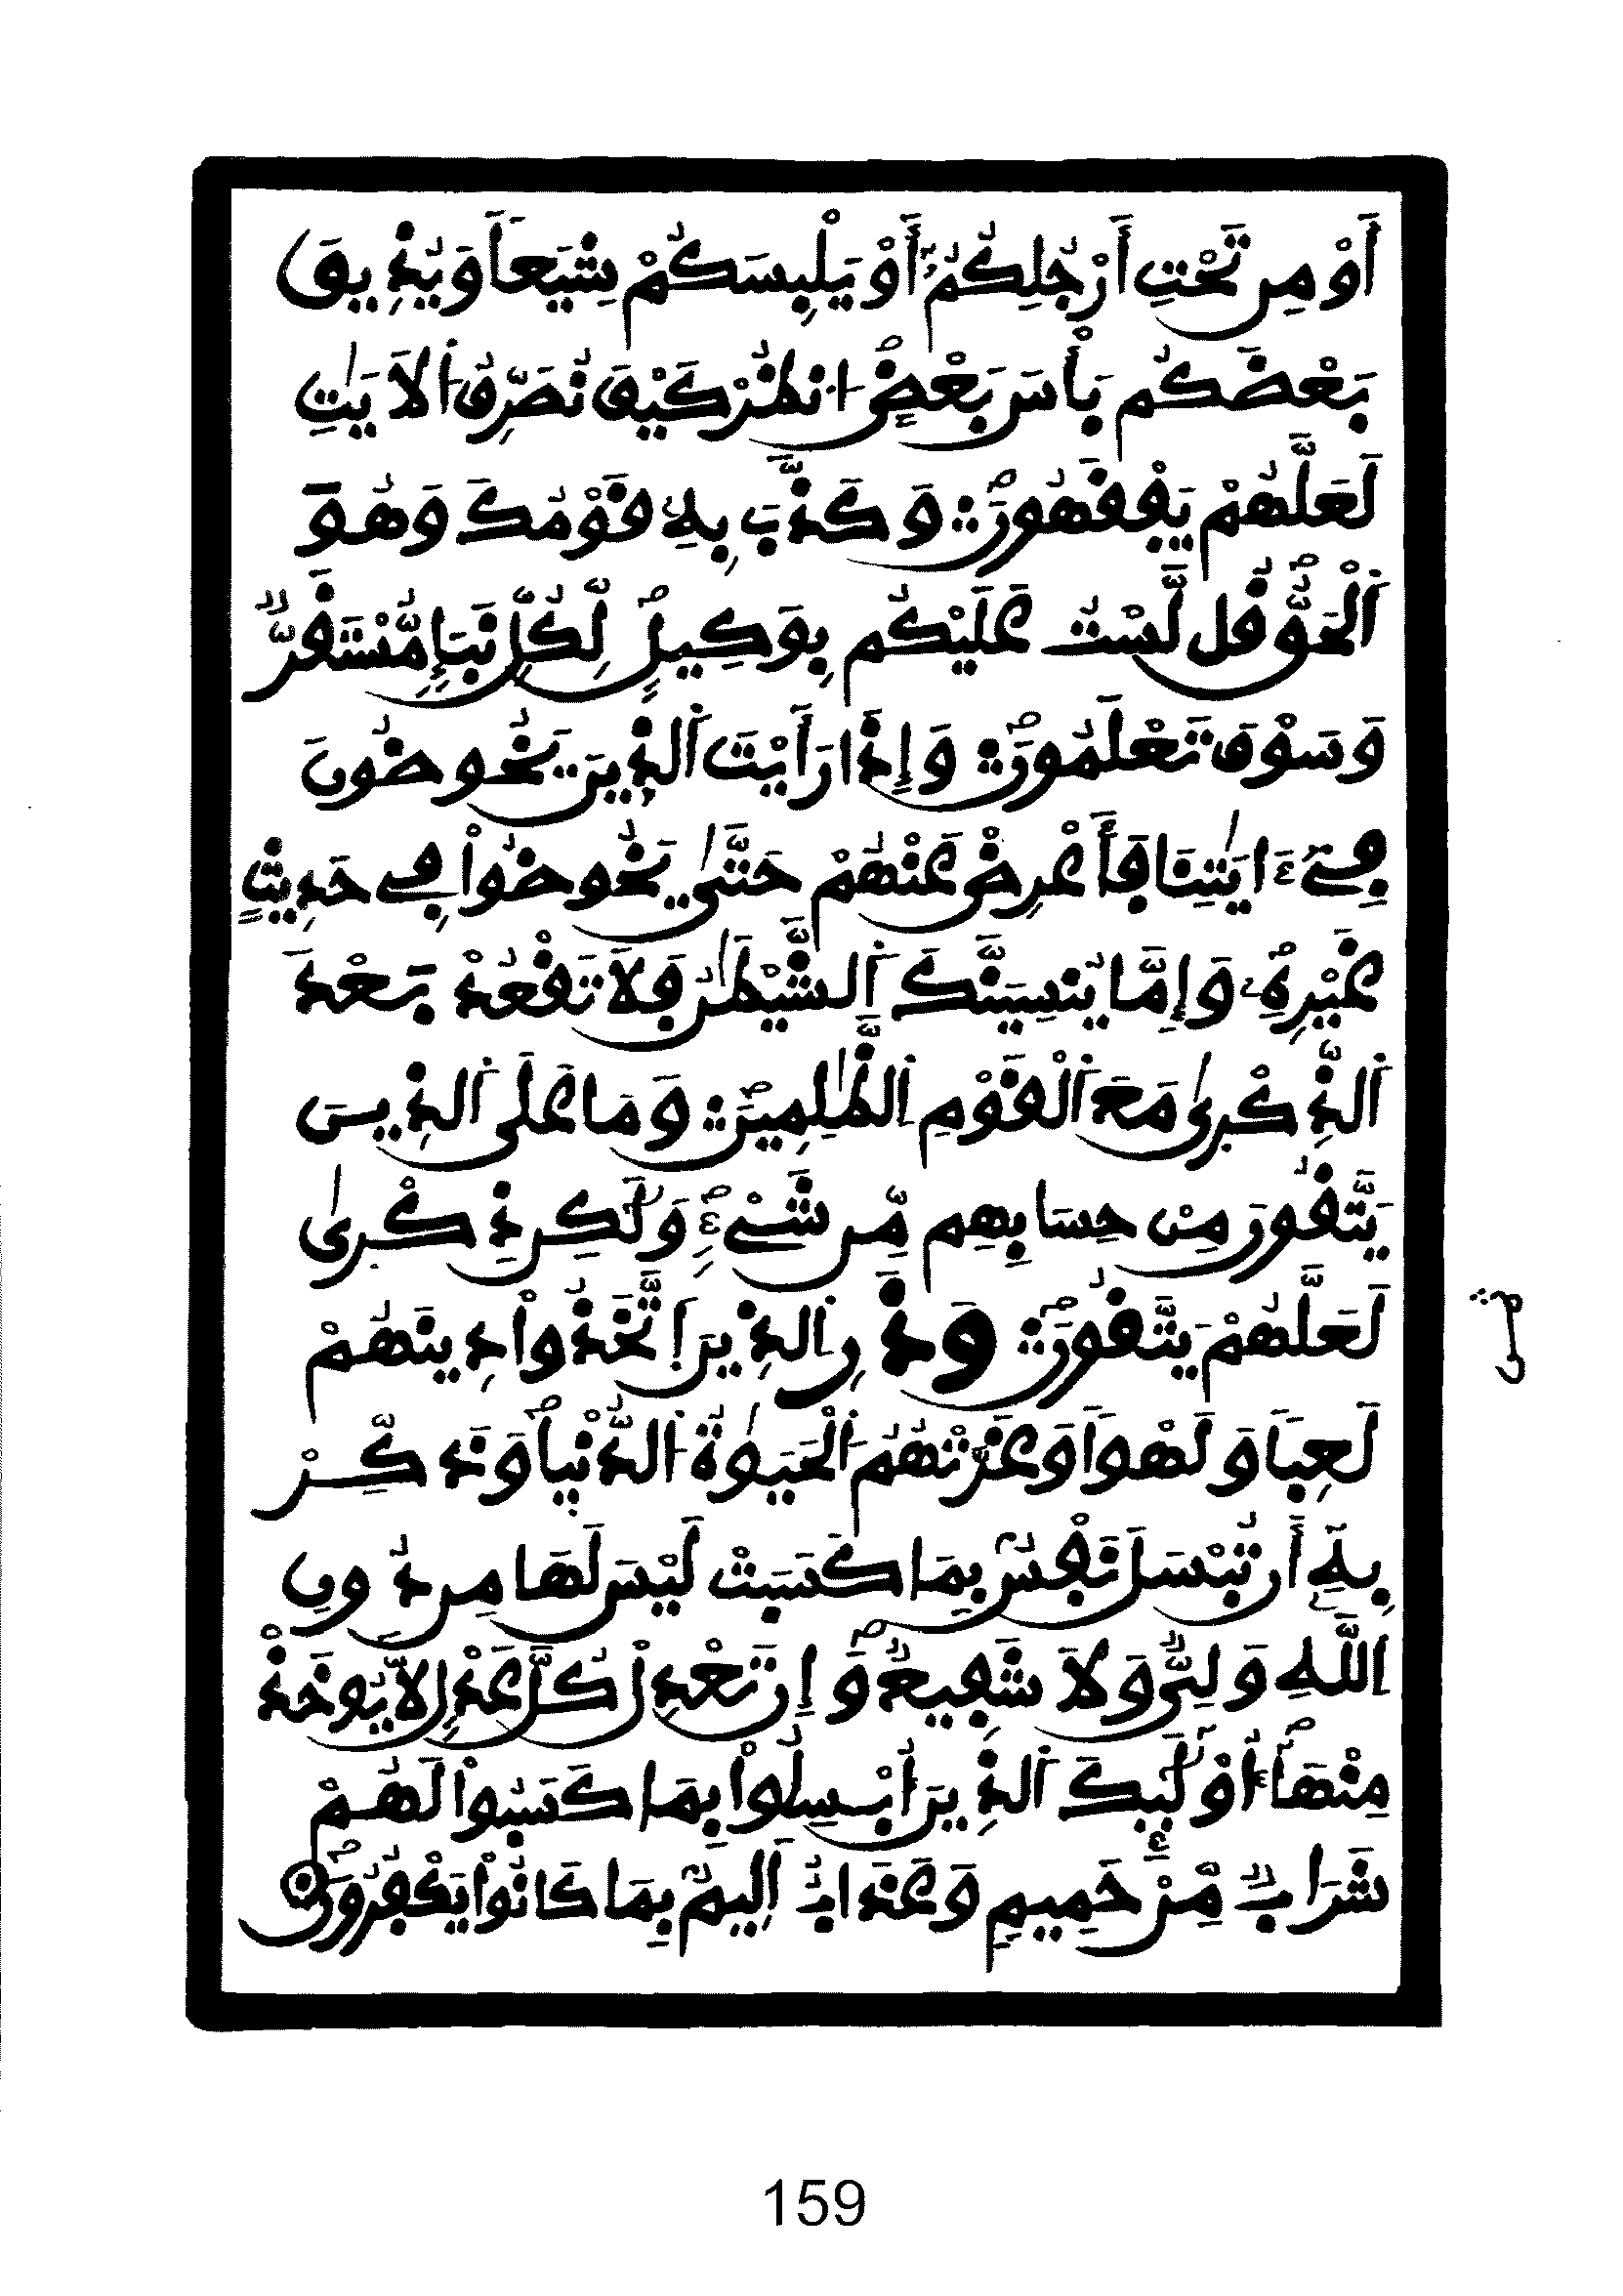 أَوْ مِن تَحْتِ أَرْجُلِكُمُۥٓ أَوْ يَلْبِسَكُمْ شِيَعاً وَيُذِيقَ
بَعْضَكُم بَأْسَ بَعْضٍ ٱنظُرْ كَيْفَ نُصَرِّفُ ٱلَايَٰتِ
لَعَلَّهُمْ يَفْقَهُونَ وَكَذَّبَ بِهِۦ قَوْمُكَ وَهُوَ
ٱلْحَقُّ قُل لَّسْتُ عَلَيْكُم بِوَكِيلٍ لِّكُلِّ نَبَإٍ مُّسْتَقَرٌّ
وَسَوْفَ تَعْلَمُونَ وَإِذَا رَأَيْتَ ٱلذِينَ يَخُوضُونَ
فِےٓ ءَايَٰتِنَا فَأَعْرِضْ عَنْهُمْ حَتَّىٰ يَخُوضُواْ فِے حَدِيثٍ
غَيْرِهِۦ وَإِمَّا يُنسِيَنَّكَ ٱلشَّيْطَٰنُ فَلَا تَقْعُدْ بَعْدَ
ٱلذِّكْرىٰ مَعَ ٱلْقَوْمِ ٱلظَّٰلِمِينَ وَمَا عَلَى ٱلذِينَ
يَتَّقُونَ مِنْ حِسَابِهِم مِّن شَےْءٍ وَلَٰكِن ذِكْرىٰ
لَعَلَّهُمْ يَتَّقُونَ وَذَرِ ٱلذِينَ ٱتَّخَذُواْ دِينَهُمْ
لَعِباً وَلَهْواً وَغَرَّتْهُمُ ٱلْحَيَوٰةُ ٱلدُّنْيا وَذَكِّرْ
بِهِۦٓ أَن تُبْسَلَ نَفْسٌ بِمَا كَسَبَتْ لَيْسَ لَهَا مِن دُونِ
ٱللَّهِ وَلِىٌّ وَلَا شَفِيعٌ وَإِن تَعْدِلْ كُلَّ عَدْلٍ لَّا يُوخَذْ
مِنْهَآ أُوْلَٰٓئِكَ ٱلذِينَ أُبْسِلُواْ بِمَا كَسَبُواْ لَهُمْ
شَرَابٌ مِّنْ حَمِيمٍ وَعَذَابٌ أَلِيمٌ بِمَا كَانُواْ يَكْفُرُونَ
159